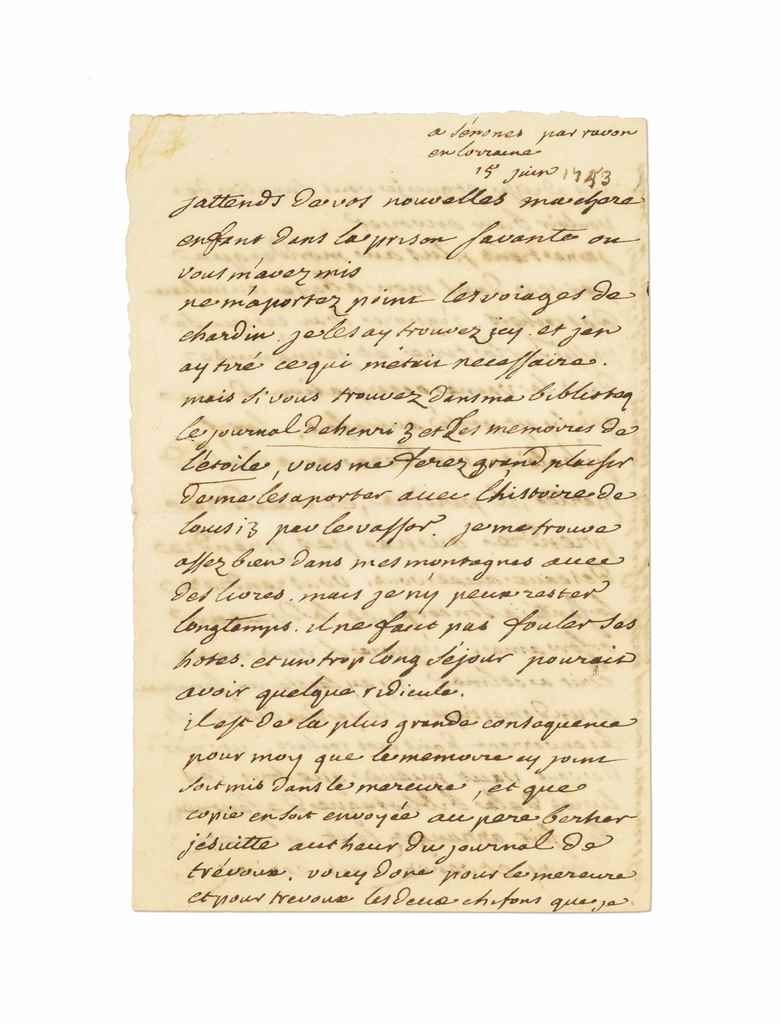 a Sénones par ravon
en lorraine
15 juin 1753
jattends de vos nouvelles ma chere
enfant dans la prison savante ou
vous m'avez mis
ne m'aportez point les voiages de
chardin. je les ay trouvez icy. et jen
ay tiré ce qui m'étoit necessaire.
mais si vous trouvez dans ma bibliotaq
le journal de henri 3 et Les memoires de
l'étoile, vous me ferez grand plaisir
de me les aporter avec l'histoire de
louis 13 par le vassor. je me trouve
assez bien dans mes montagnes avec
des livres. mais je n'y peux rester
longtemps. il ne faut pas fouler ses
hotes. et un trop long séjour pourait
avoir quelque ridicule.
il est de la plus grande consequence
pour moy que le memoire cy joint
soit mis dans le mercure, et que
copie en soit envoyée au pere berther
jésuitte autheur du journal de
trévoux. voicy donc pour le mercure
et pour trevoux les deux chifons que je